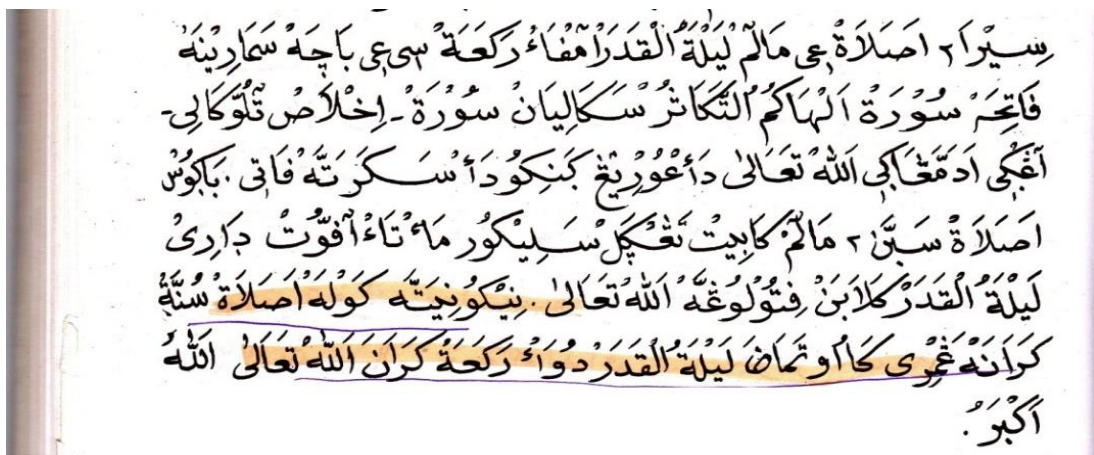 سِيْرَا٢ اَصَلَاةْ عٍى مَالَمْ لَيْلَةُ الْقَدَرْ اَمْفَاءْ رَكَعَةْ سٍى عٍى بَاچَهْ سَمَارِيْنَهْ
فَاتِحَهْ سُوْرَةْ اَلْهَاكُمُ التَّكَاثُرْ سَكَالِيَانْ سُوْرَةْ ـ اِخْلَاصْ تَلُّوْكَالِى ـ
اَللّٰهْ تَعَالٰى دَأْ عُوْرِيْڠْ كَنِكُوْ دَأْ سَكَرَتَّهْ فَاتِى . بَاكُوْسْ
اَصَلَاةْ سَبَّنْ ٢ مَالَمْ كَابِيْتْ تَڠْكَلْ سَلِيْكُوْر مَاءْ تَاءْ اَفُوَّتْ دَارِىْ
لَيْلَةُ الْقَدَرْ كَلَابَنْ فِتُوْلُوْڠَّهْ اَللّٰهْ تَعَالٰى . نِيْكُوْ نِيَتَّهْ كَوْلَهْ اَصَلَاةْ سُنَّةْ
كَرَانَهْ لَيْلَةُ الْقَدَرْ دُوَاءْ رَكَعَةْ كَرَانَ اللّٰهْ تَعَالٰى اَللّٰهُ
اَكْبَرْ .